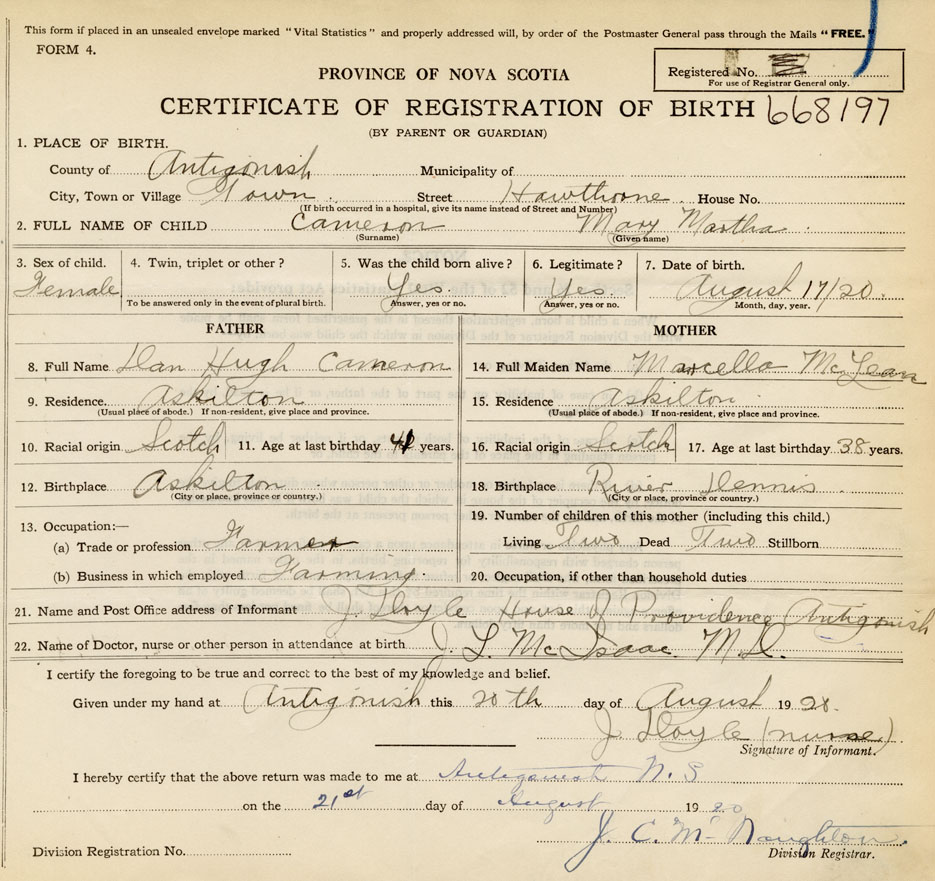 This form if placed in an unsealed envelope marked "Vital Statistics" and properly addressed will, by order of the Postmaster General pass through the Mails "FREE."
FORM 4.
Registered No.
For use of Registrar General only.
PROVINCE OF NOVA SCOTIA
CERTIFICATE OF REGISTRATION OF BIRTH 668197
(BY PARENT OR GUARDIAN)
1. PLACE OF BIRTH.
County of Antigonish Municipality of
City, Town or Village Town Street Hawthorne House No.
(If birth occurred in a hospital, give its name instead of Street and Number)
2. FULL NAME OF CHILD Cameron Mary Martha
(Surname) (Given name)
3. Sex of child. 4. Twin, triplet or other? 5. Was the child born alive? 6. Legitimate? 7. Date of birth.
Female Yes Yes August 17/20
To be answered only in the event of plural birth. Answer, yes or no. Answer, yes or no. Month, day, year.
FATHER MOTHER
8. Full Name Dan Hugh Cameron 14. Full Maiden Name Marcella McLean
9. Residence Askilton 15. Residence Askilton
(Usual place of abode.) If non-resident, give place and province. (Usual place of abode.) If non-resident, give place and province.
10. Racial origin Scotch 11. Age at last birthday 41 years. 16. Racial origin Scotch 17. Age at last birthday 38 years.
12. Birthplace Askilton 18. Birthplace River Dennis
(City or place, province or country.) (City or place, province or country.)
13. Occupation:— 19. Number of children of this mother (including this child.)
(a) Trade or profession Farmer Living Two Dead Two Stillborn
(b) Business in which employed Farming 20. Occupation, if other than household duties
21. Name and Post Office address of Informant J. Doyle House of Providence Antigonish
22. Name of Doctor, nurse or other person in attendance at birth J. L. McIsaac M.D.
I certify the foregoing to be true and correct to the best of my knowledge and belief.
Given under my hand at Antigonish this 20th day of August 1920.
J. Doyle (nurse)
Signature of Informant.
I hereby certify that the above return was made to me at Antigonish N. S
on the 21st day of August 1920
J. C. McNaughton
Division Registrar.
Division Registration No.